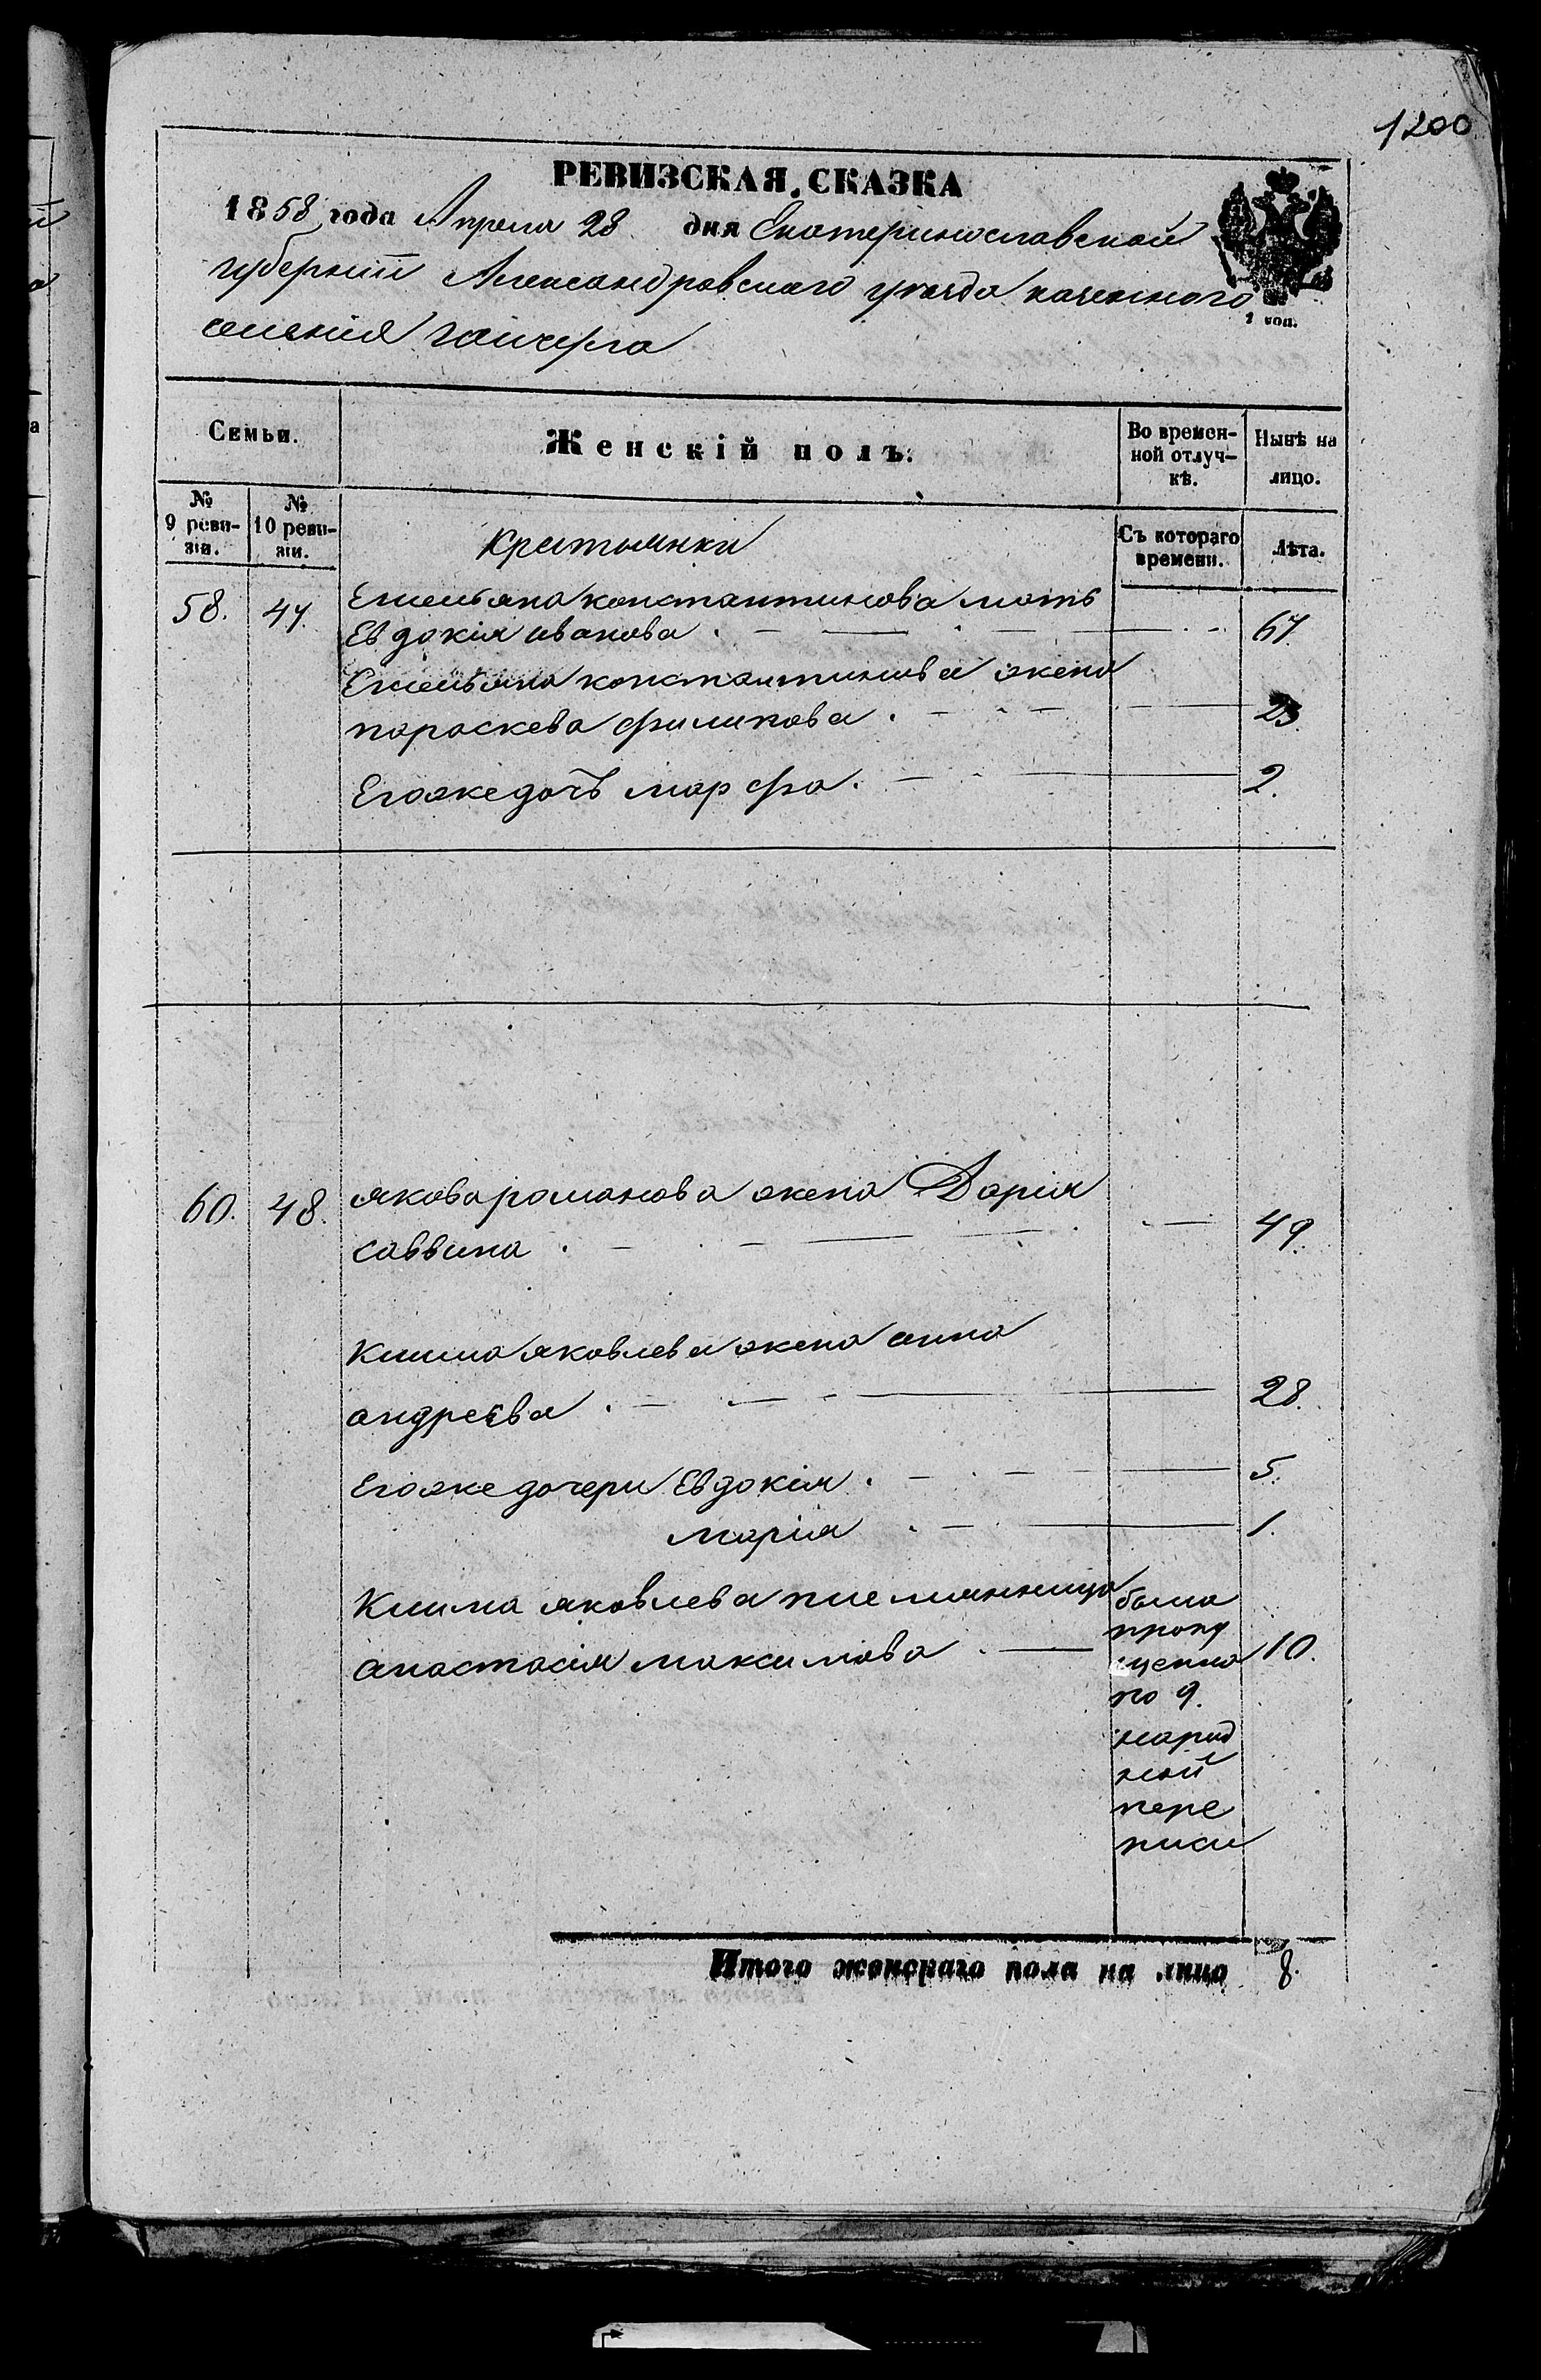 1200
РЕВИЗСКАЯ СКАЗКА
1858 года Апреля 28 дня Екатеринославской
губернiи Александровского уезда казенного
селенiя гайчула
1 коп.
Семьи. Женскiй полъ. Во времен-ной отлуч-кѣ. Нынѣ на лицо.
№ 9 реви-зiи. № 10 реви-зiи. Съ котораго времени. Лѣта.
Крестьянки
58. 47. Емельяна константинова мать
Евдокiя иванова 67.
Емельяна константинова жена
параскева филипова 23.
Егоже дочь марфа. 2.
60. 48. якова романова жена Дарiя
саввина 49.
Клима яковлева жена анна
андреева 28.
Егоже дочери Евдокiя 5.
марiя 1.
Клима яковлева племянница
анастасiя максимова 10.
была
пропу
щенна
по 9.
народ
ной
пере
писи
Итого женскаго пола на лицо 8.